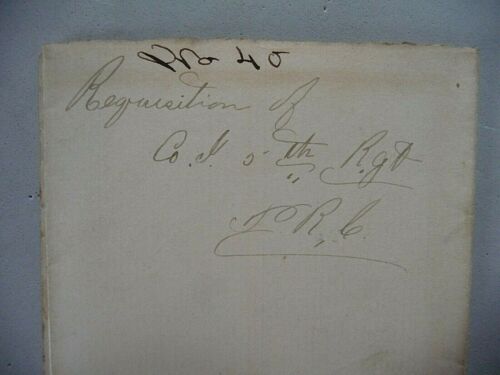 No 40
Requisition of
Co. I. 5th Rgt
P. R, C.